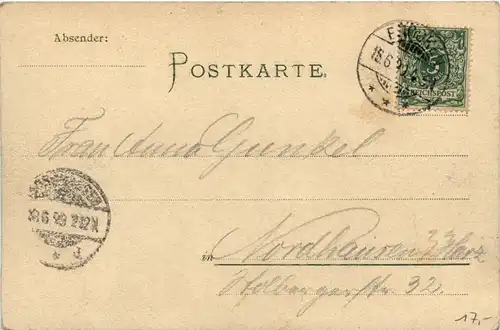 Absender:
POSTKARTE.
18.6.99
REICHSPOST
5
Frau Anna Gunkel
18 6 99
in Nordhausen a/Harz
Stolbergerstr. 32.
17,-